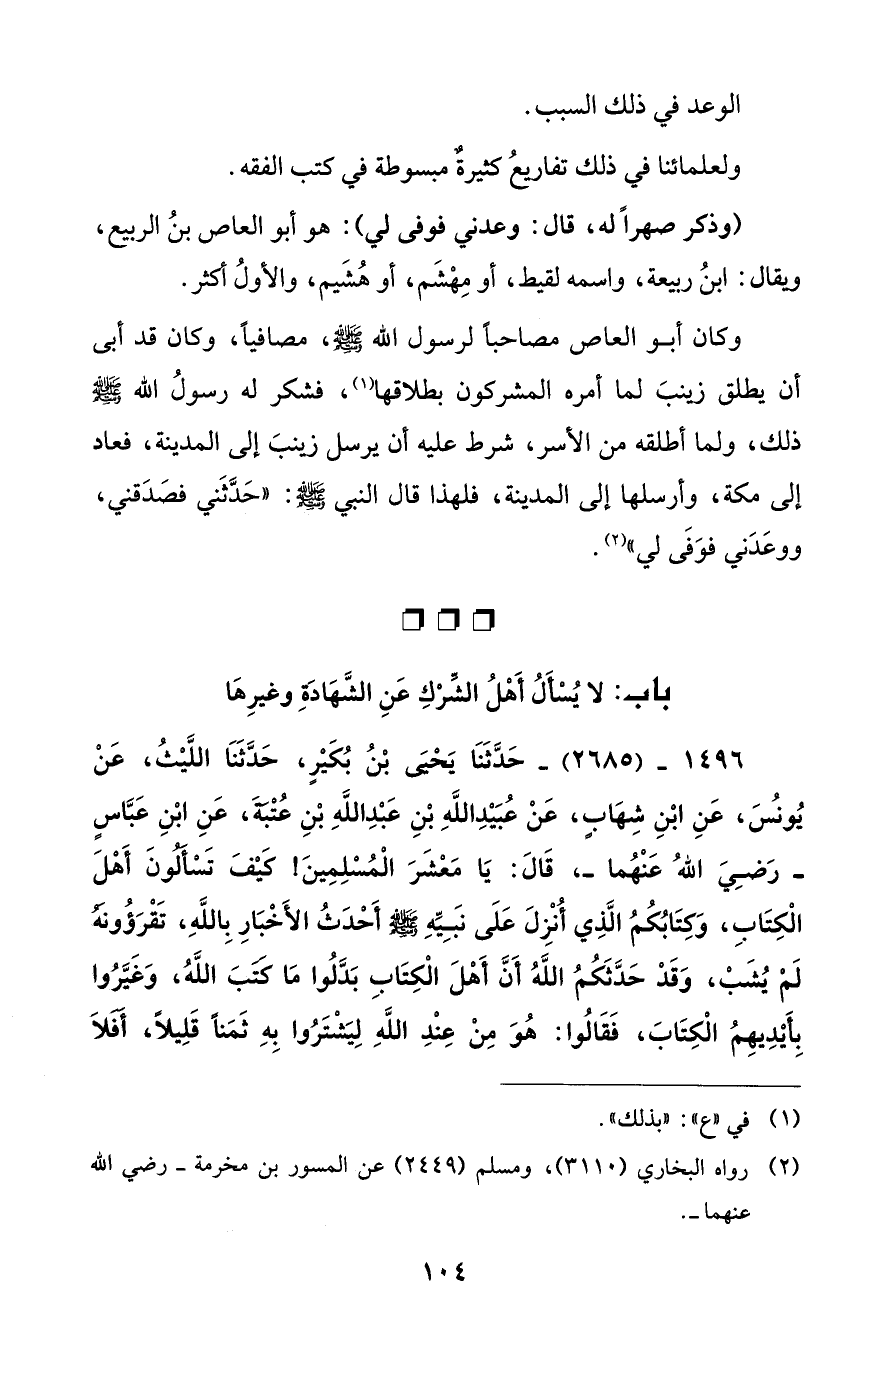 الوعد في ذلك السبب.
ولعلمائنا في ذلك تفاريعُ كثيرةٌ مبسوطة في كتب الفقه.
(وذكر صهراً له، قال: وعدني فوفى لي): هو أبو العاص بنُ الربيع،
ويقال: ابنُ ربيعة، واسمه لقيط، أو مِهْشَم، أو هُشَيم، والأولُ أكثر.
وكان أبو العاص مصاحباً لرسول الله ﷺ، مصافياً، وكان قد أبى
أن يطلق زينبَ لما أمره المشركون بطلاقها(١)، فشكر له رسولُ الله ﷺ
ذلك، ولما أطلقه من الأسر، شرط عليه أن يرسل زينبَ إلى المدينة، فعاد
إلى مكة، وأرسلها إلى المدينة، فلهذا قال النبي ﷺ: «حَدَّثَني فصَدَقني،
ووعَدَني فوَفَى لي»(٢).
❒ ❒ ❒
باب: لا يُسْأَلُ أَهْلُ الشِّرْكِ عَنِ الشَّهَادَةِ وغيرِهَا
١٤٩٦ - (٢٦٨٥) - حَدَّثَنَا يَحْيَى بْنُ بُكَيْرٍ، حَدَّثَنَا اللَّيْثُ، عَنْ
يُونُسَ، عَنِ ابْنِ شِهَابٍ، عَنْ عُبَيْدِاللَّهِ بْنِ عَبْدِاللَّهِ بْنِ عُتْبَةَ، عَنِ ابْنِ عَبَّاسٍ
- رَضِيَ اللهُ عَنْهُما -، قَالَ: يَا مَعْشَرَ الْمُسْلِمِينَ! كَيْفَ تَسْأَلُونَ أَهْلَ
الْكِتَابِ، وَكِتَابُكُمُ الَّذِي أُنْزِلَ عَلَى نَبِيِّهِ ﷺ أَحْدَثُ الأَخْبَارِ بِاللَّهِ، تَقْرَؤُونَهُ
لَمْ يُشَبْ، وَقَدْ حَدَّثَكُمُ اللَّهُ أَنَّ أَهْلَ الْكِتَابِ بَدَّلُوا مَا كَتَبَ اللَّهُ، وَغَيَّرُوا
بِأَيْدِيهِمُ الْكِتَابَ، فَقَالُوا: هُوَ مِنْ عِنْدِ اللَّهِ لِيَشْتَرُوا بِهِ ثَمَناً قَلِيلاً، أَفَلاَ
(١) في «ع»: «بذلك».
(٢) رواه البخاري (٣١١٠)، ومسلم (٢٤٤٩) عن المسور بن مخرمة - رضي الله
عنهما -.
١٠٤